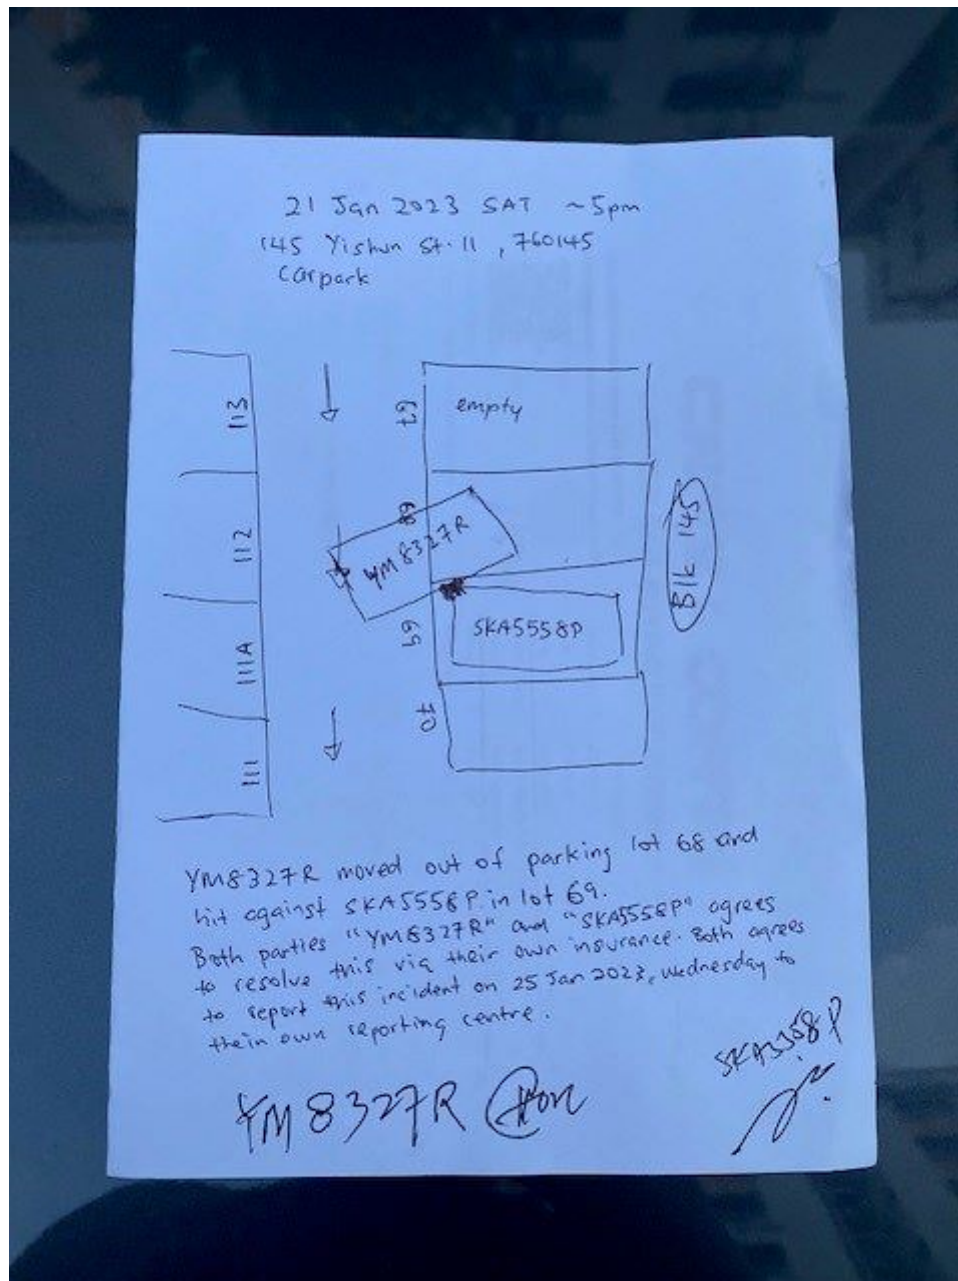 21 Jan 2023 SAT ~5pm
145 Yishun St. 11, 760145
Carpark
113
112
111A
111
67
68
69
70
empty
YM8327R
SKA5558P
Blk 145
YM8327R moved out of parking lot 68 and
hit against SKA5558P in lot 69.
Both parties "YM8327R" and "SKA5558P" agrees
to resolve this via their own insurance. Both agrees
to report this incident on 25 Jan 2023, Wednesday to
their own reporting centre.
SKA5558P
YM8327R